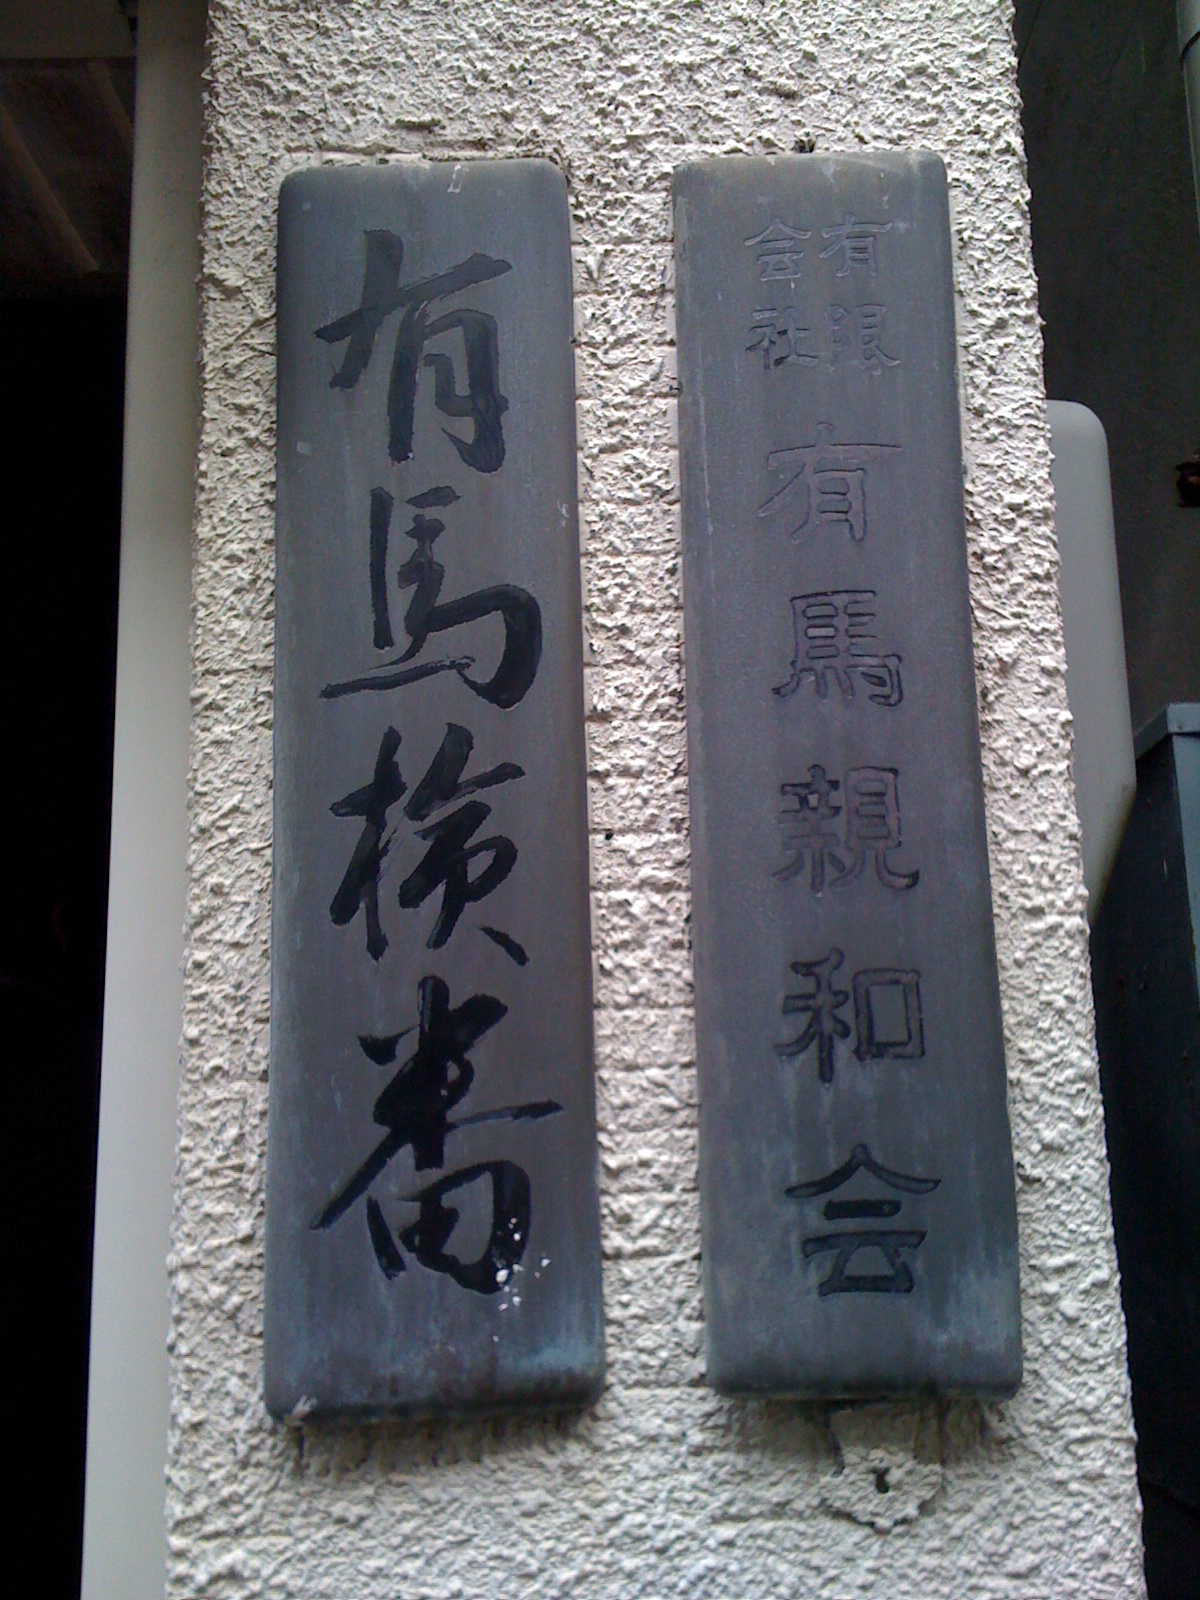 有限
会社
有馬親和会
有馬検番